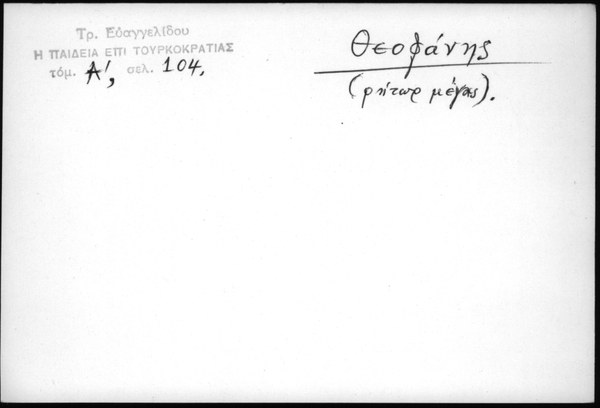 Τρ. Εὐαγγελίδου
Η ΠΑΙΔΕΙΑ ΕΠΙ ΤΟΥΡΚΟΚΡΑΤΙΑΣ
τόμ. Α', σελ. 104.
Θεοφάνης
(ρήτωρ μέγας).